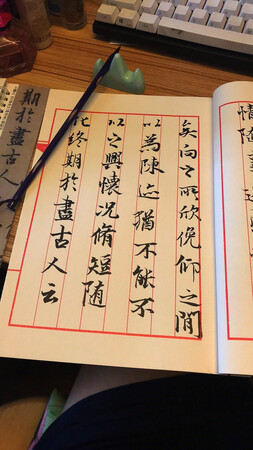 情随
矣向之所欣俛仰之間
以為陳迹猶不能不
以之興懷况脩短随
化終期於盡古人云
期於盡古人